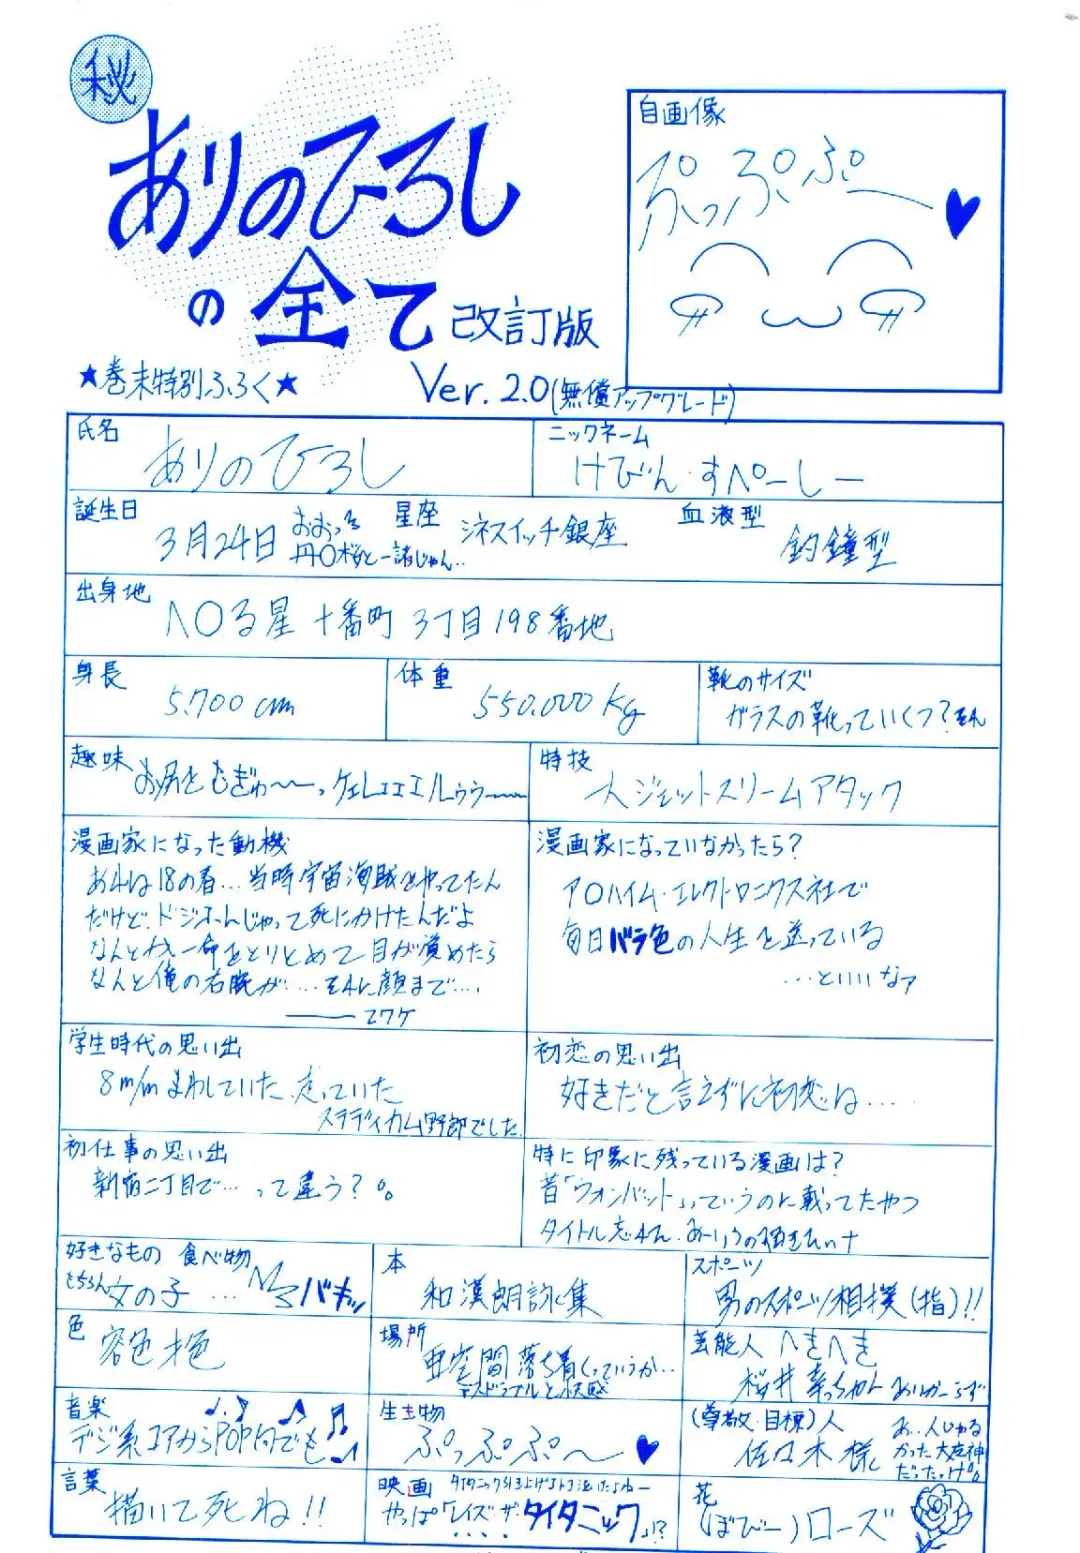 秘
ありのひろし
の全て改訂版
★巻末特別ふろく★
Ver. 2.0(無償アップグレード)
自画像
ぷっぷぷー♥
氏名
ありのひろし
ニックネーム
けびん・すぺーしー
誕生日
3月24日
おおっ
丹〇桜と一諸じゃん..
星座
シネスイッチ銀座
血液型
釣鐘型
出身地
八〇る星 十番町 3丁目198番地
身長
5.700cm
体重
550.000Kg
靴のサイズ
ガラスの靴っていくつ?
趣味
お尻をもぎゅ〜〜っ、ケェレェェェルゥゥ〜〜
特技
人ジェットストリームアタック
漫画家になった動機
あれは18の春…当時宇宙海賊をやってたん
だけど、ド・ジふんじゃって死にかけたんだよ
なんとか一命をとりとめて目が覚めたら
なんと俺の右腕が……それに顔まで….
――コワケ
漫画家になっていなかったら?
ア〇ハイム・エレクトロニクス社で
毎日バラ色の人生を送っている
…といいなァ
学生時代の思い出
8m/mまわしていた、走っていた
ステディカム野郎でした
初恋の思い出
好きだと言えずに初恋は….
初仕事の思い出
新宿二丁目で…って違う?。
特に印象に残っている漫画は?
昔「ウォンバット」っていうのに載ってたやつ
タイトル忘れた、あーいうの描きたいナ
好きなもの 食べ物
もちろん女の子… バキッ
本
和漢朗詠集
スポーツ
男のスポーツ相撲(指)!!
色
容色才色
場所
亜空間 落ち着くっていうか…
芸能人 へきへき
桜井幸っちゃん ありがーらず
音楽
デジ系コアからPOP何でも
生き物
ぷっぷぷ〜♥
(尊敬・目標)人
佐々木様
言葉
描いて死ね!!
映画
やっぱ「レイズ・ザ・タイタニック」!?
花
(ぼびー)ローズ